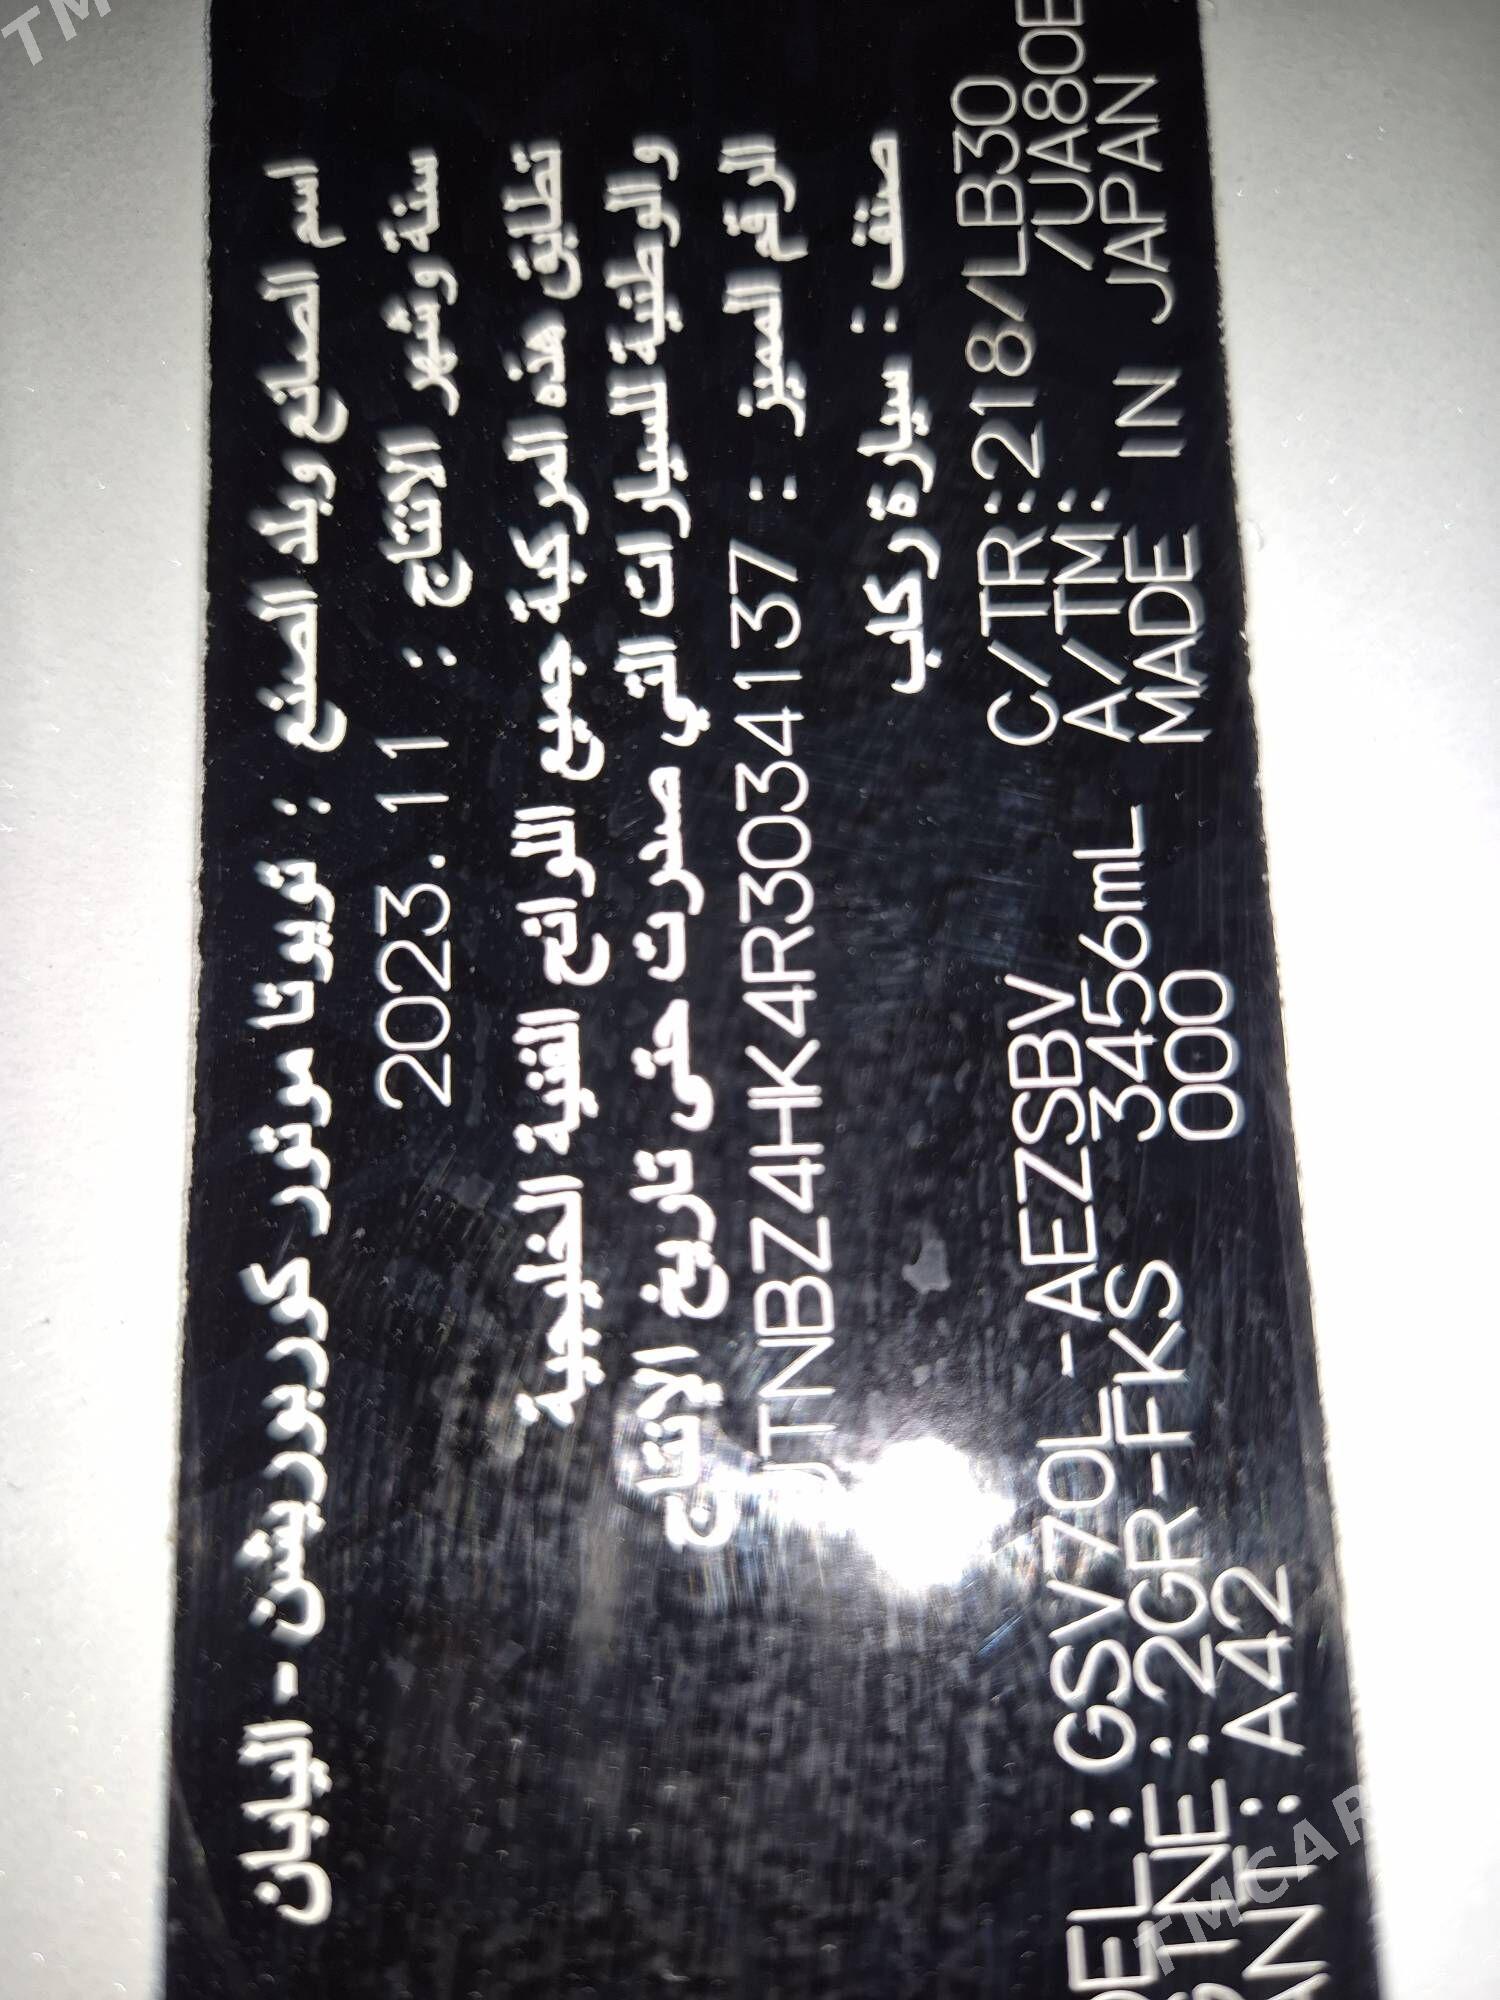 اسم الصانع وبلد الصنع : تويوتا موتور كوربوريشن - اليابان
سنة وشهر الانتاج : 2023.11
تطابق هذه المركبة جميع اللوائح الفنية الخليجية
والوطنية للسيارات التي صدرت حتى تاريخ الإنتاج
الرقم المميز : JTNBZ4HK4R3034137
صنف : سيارة ركاب
DEL : GSV70L-AEZSBV C/TR:218/LB30
INE : 2GR-FKS 3456mL A/TM: /UA80E
ANT : A42 000 MADE IN JAPAN
TM
TMCAR